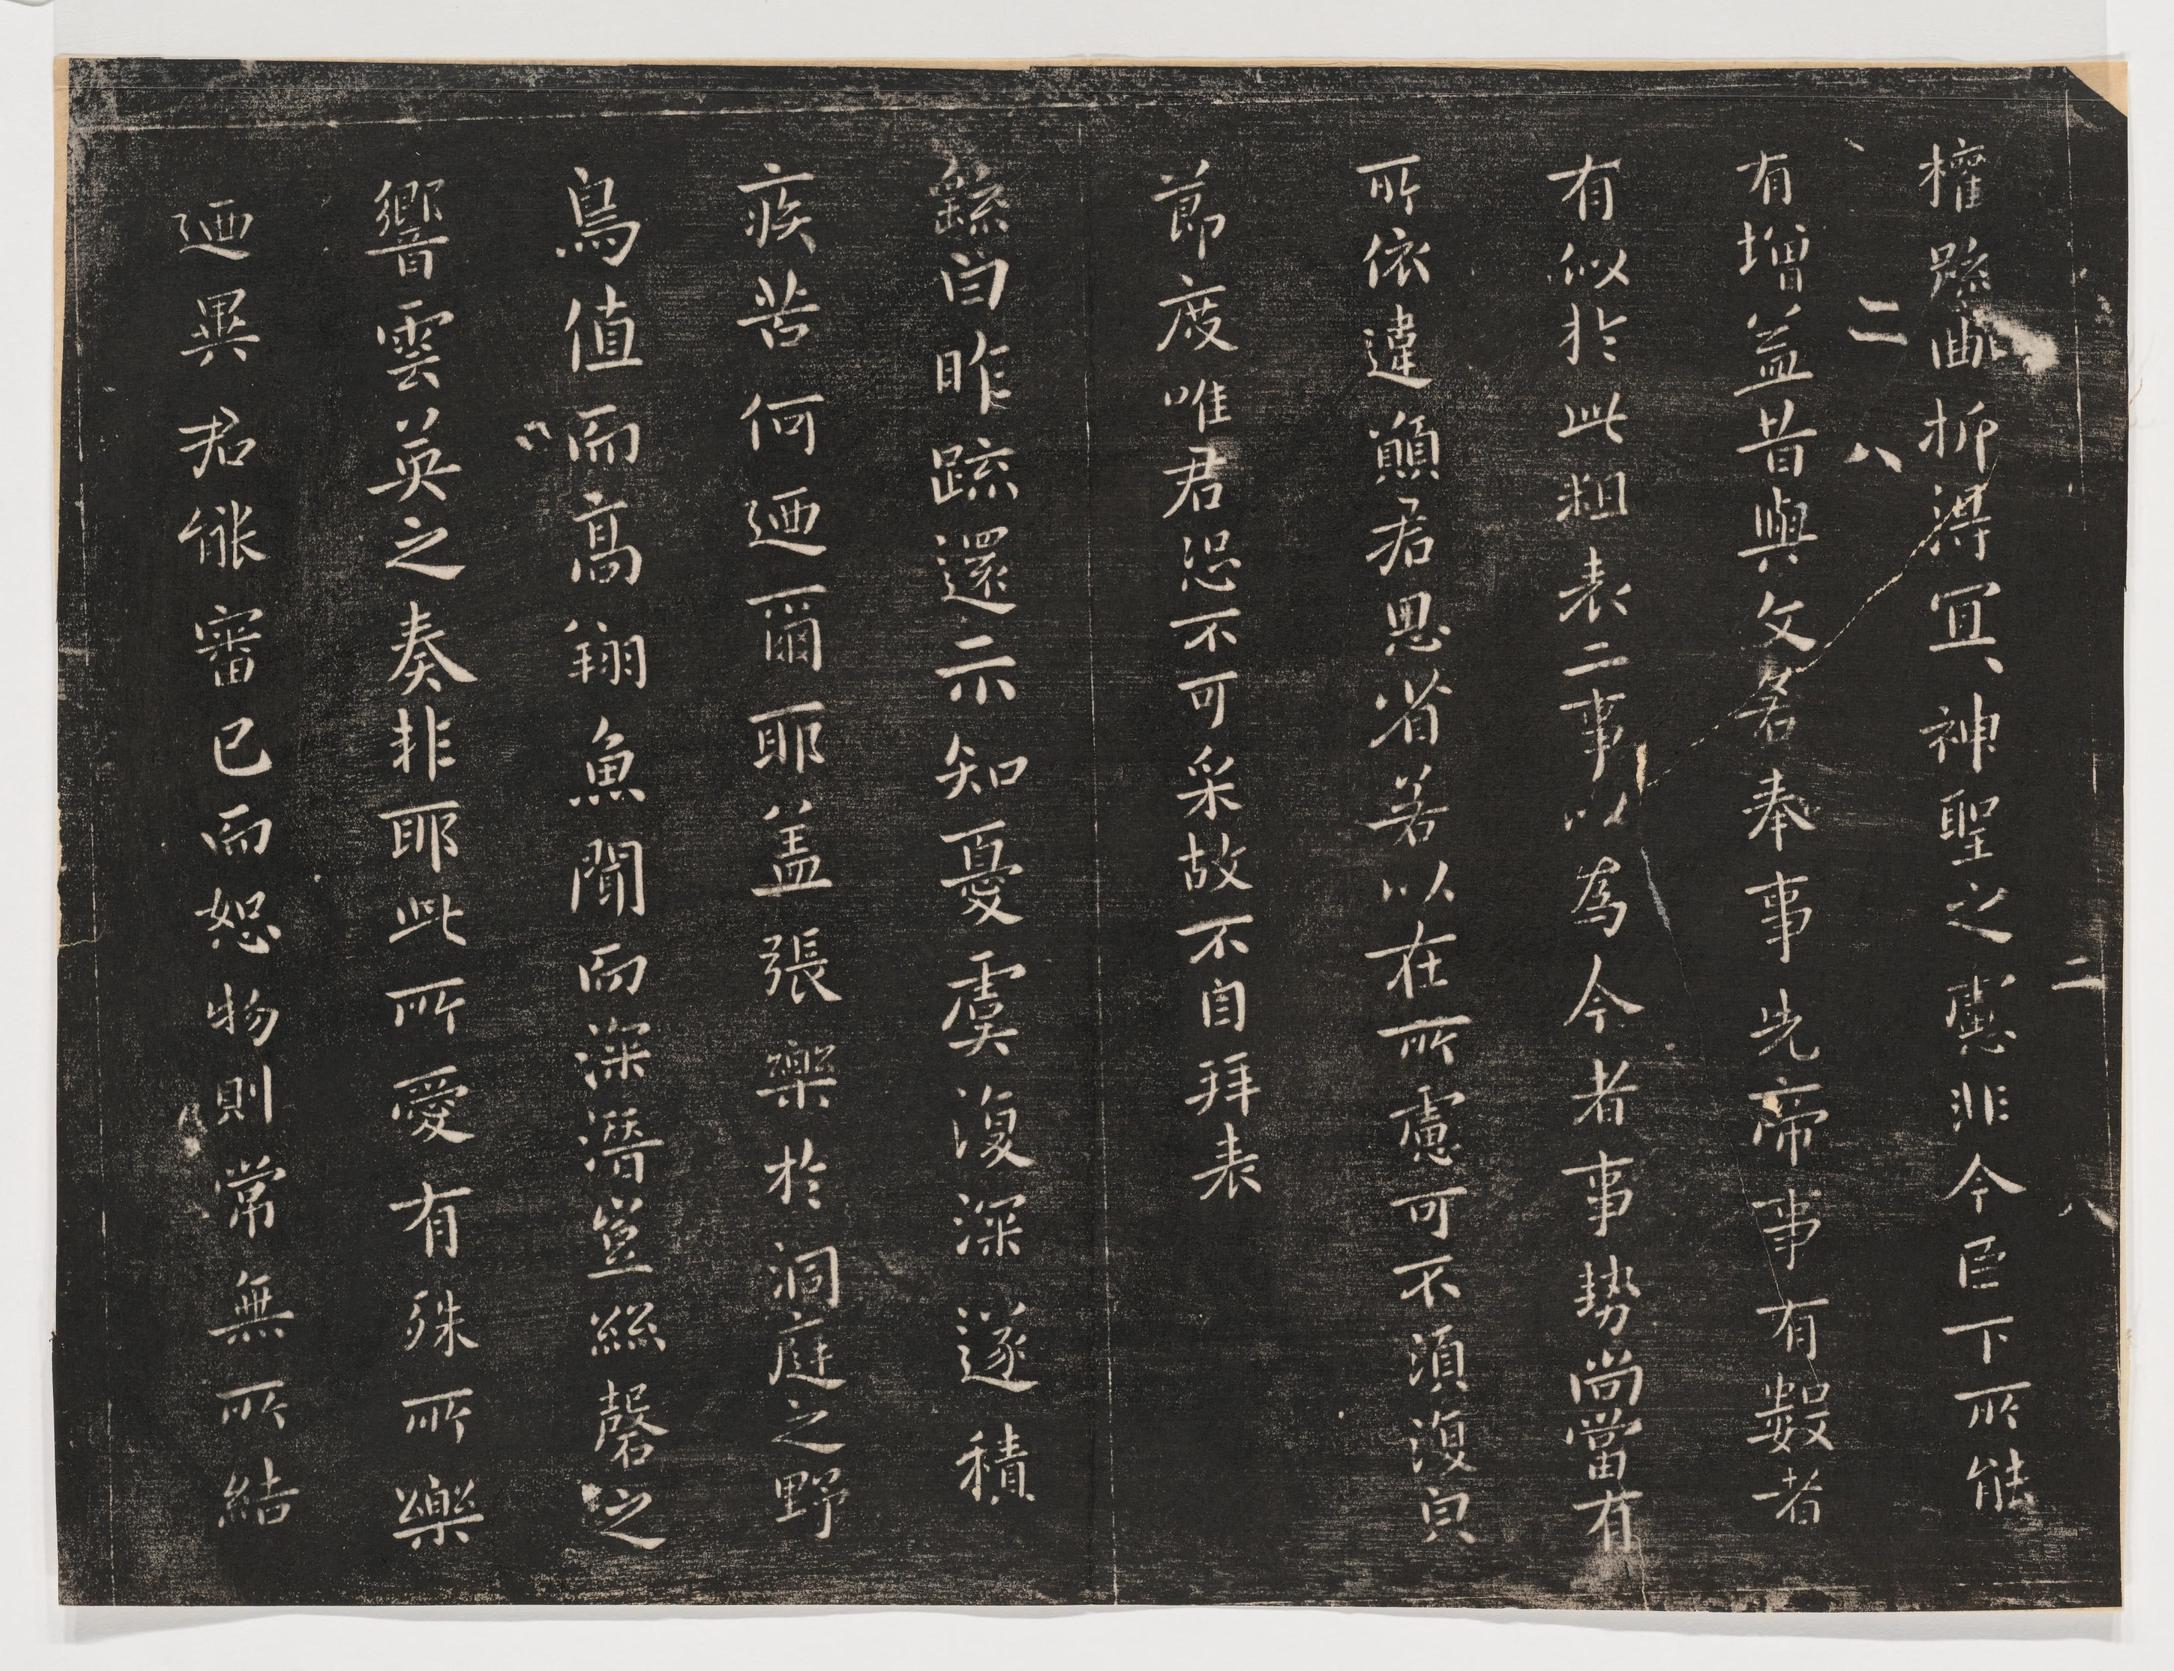 權踈曲折得宜神聖之慮非今臣下所能
有增益昔與文若奉事先帝事有數者
有似於此粗表二事以為今者事勢尚當有
所依違願君思省若以在所慮可不須復貝
節度唯君恐不可采故不自拜表
繇白昨疏還示知憂虞復深遂積
疾苦何迺爾耶盖張樂於洞庭之野
鳥值而高翔魚聞而深潛豈絲磬之
響雲英之奏非耶此所愛有殊所樂
迺異君能審己而恕物則常無所結
二
八
二
八